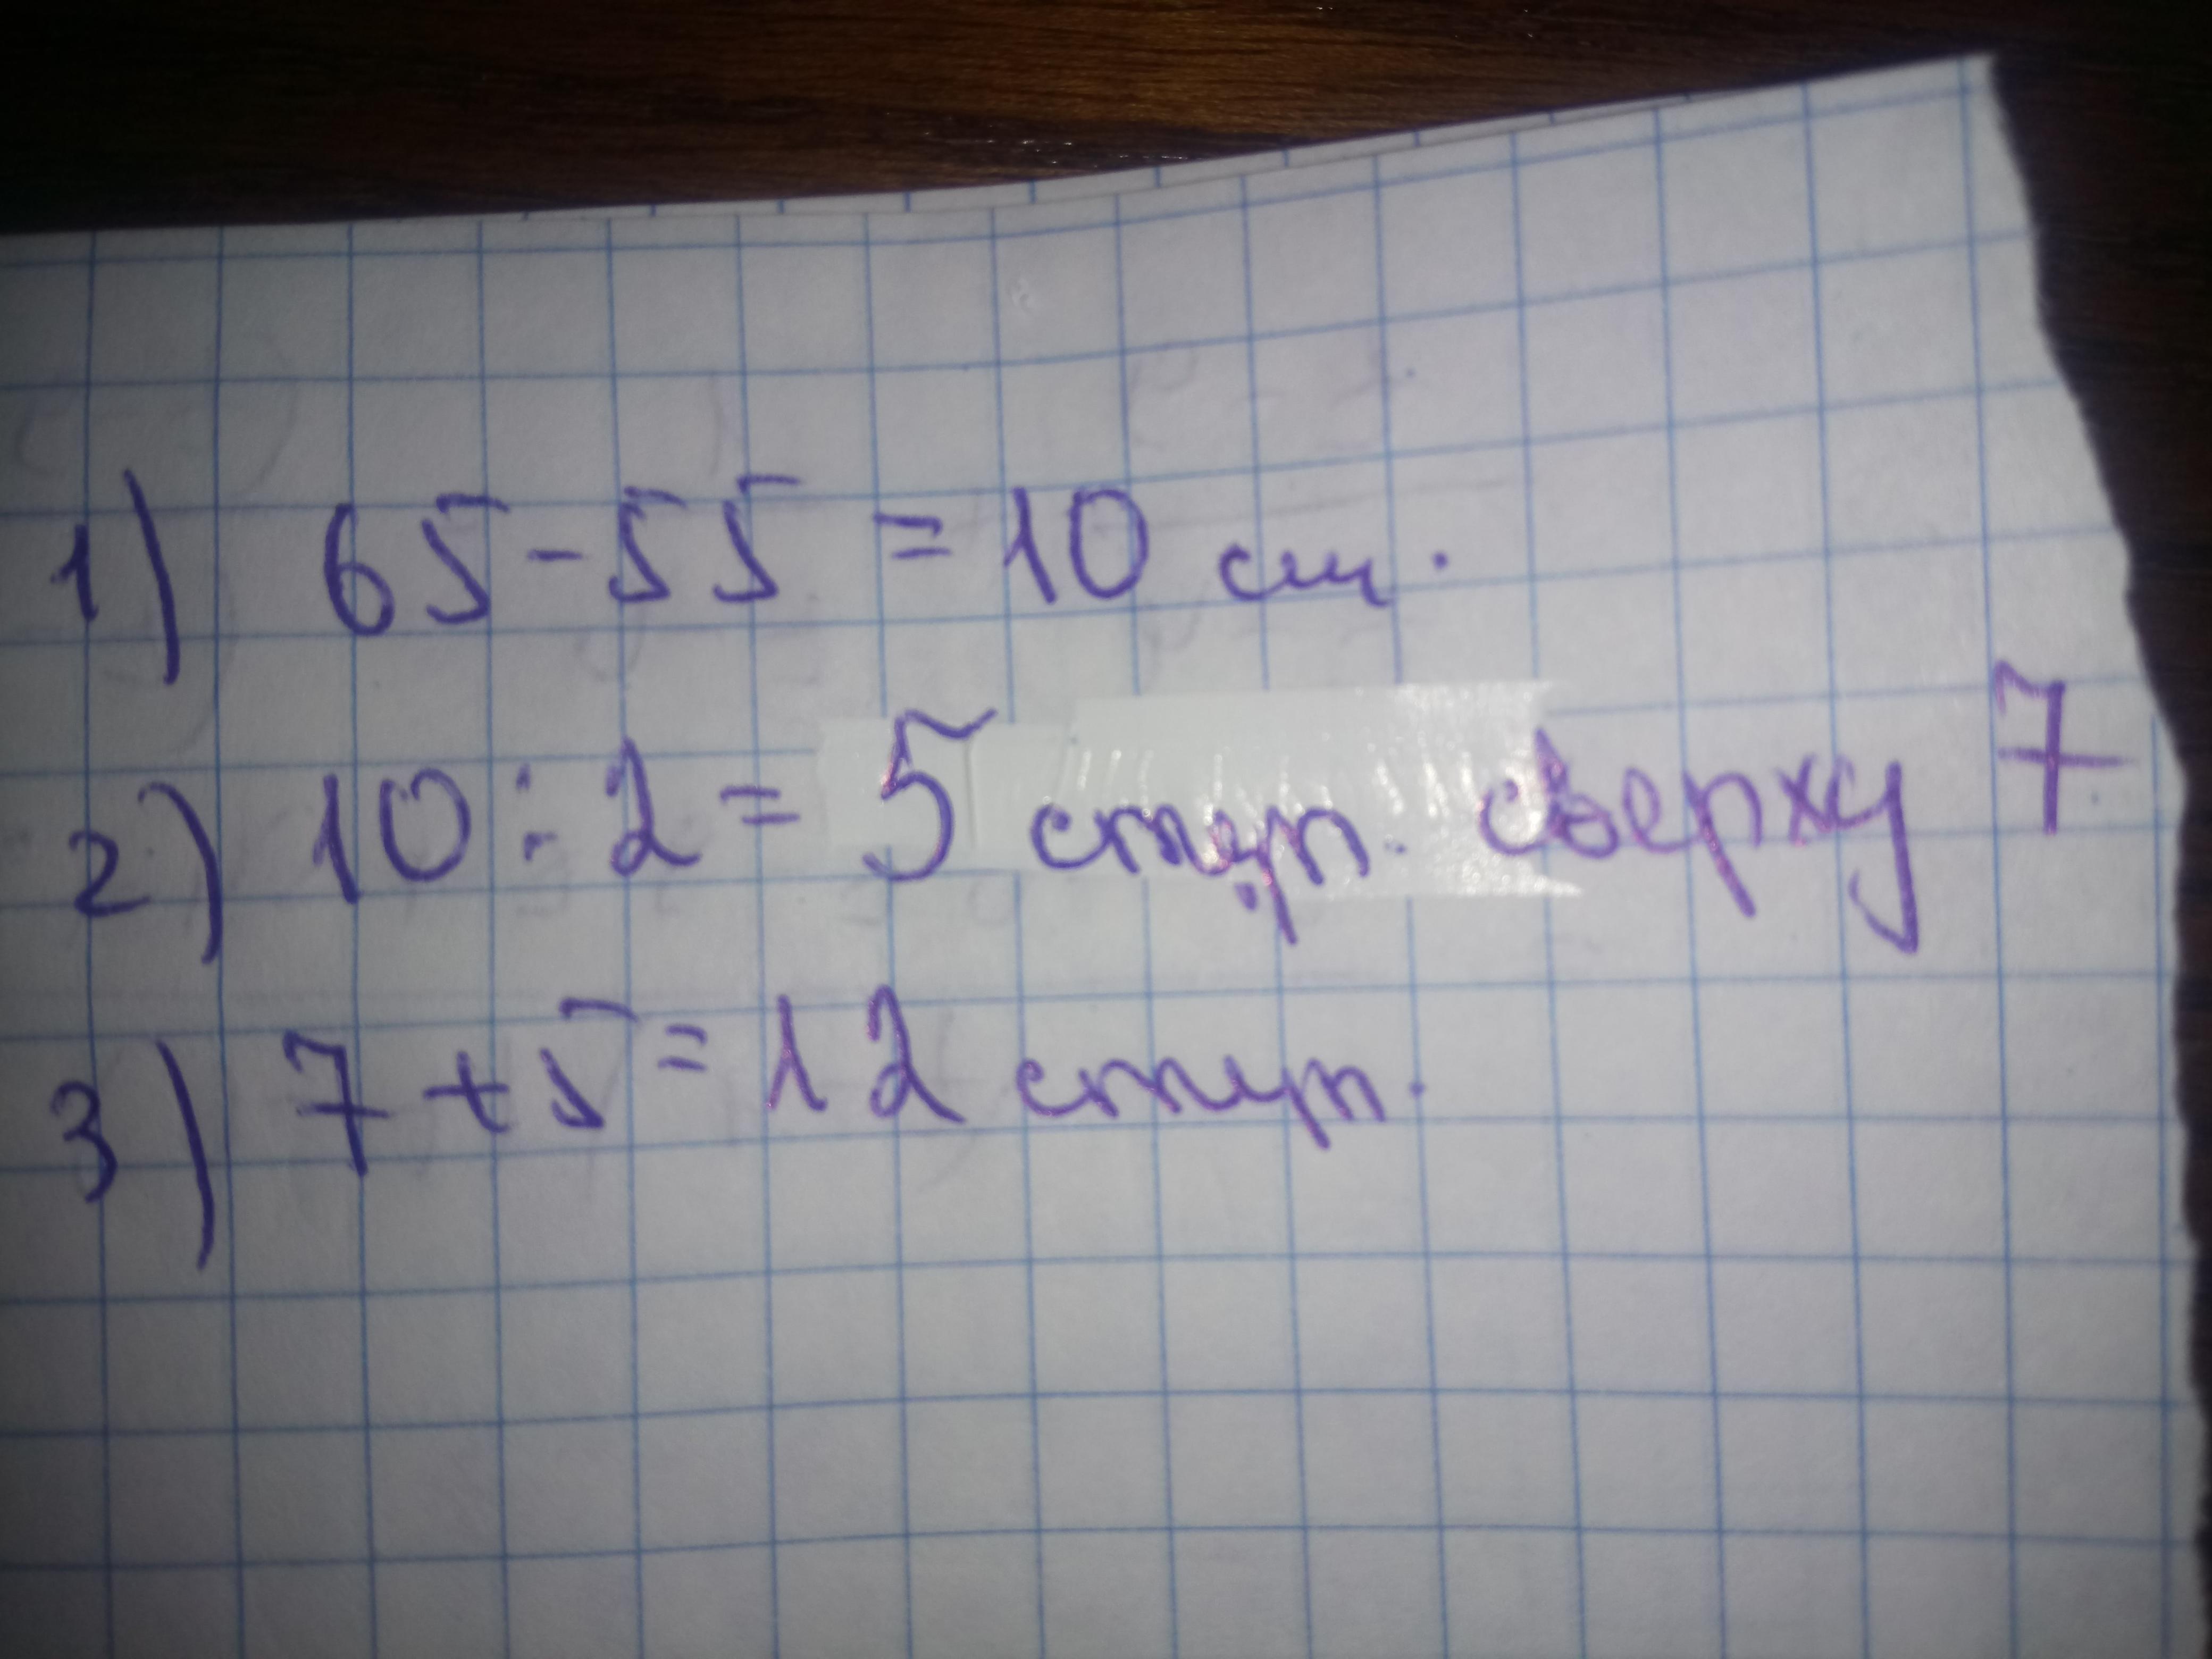 1) 65-55 = 10 см.
2) 10 : 2 = 5 ступ. сверху 7
3) 7+5=12 ступ.